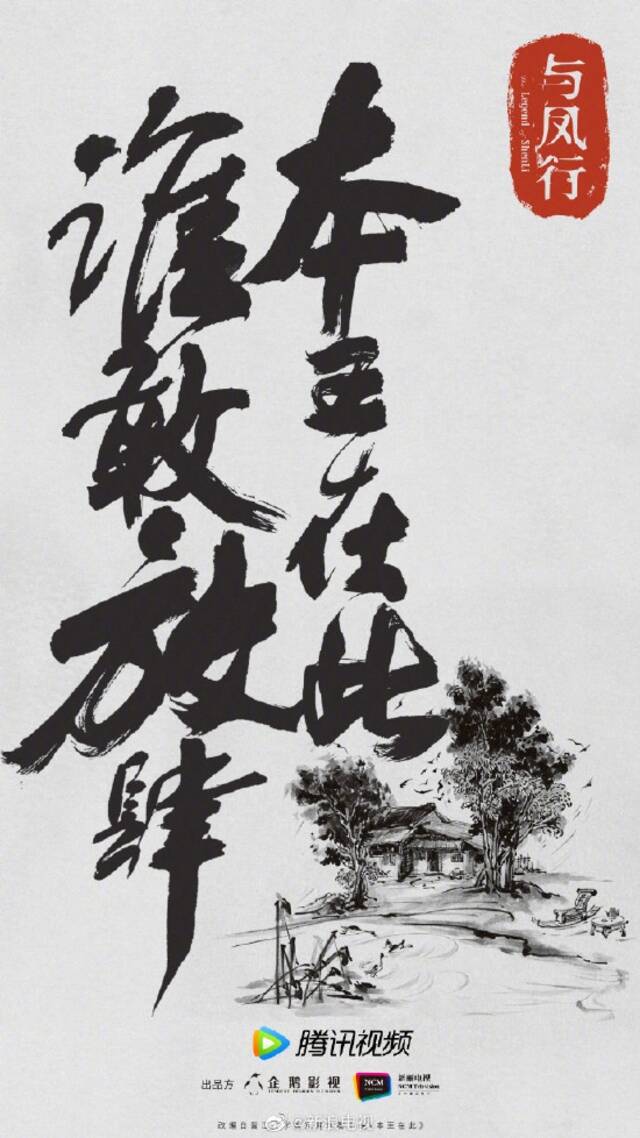 与凤行
The Legend of ShenLi
本王在此
谁敢放肆
腾讯视频
出品方 企鹅影视 新丽电视
NCM NCM Television
@新浪电视
本王在此》